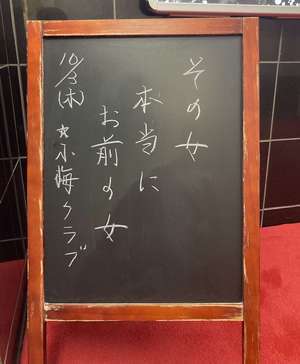 その女
本当に
お前の女
10/3(木) ☆小梅クラブ